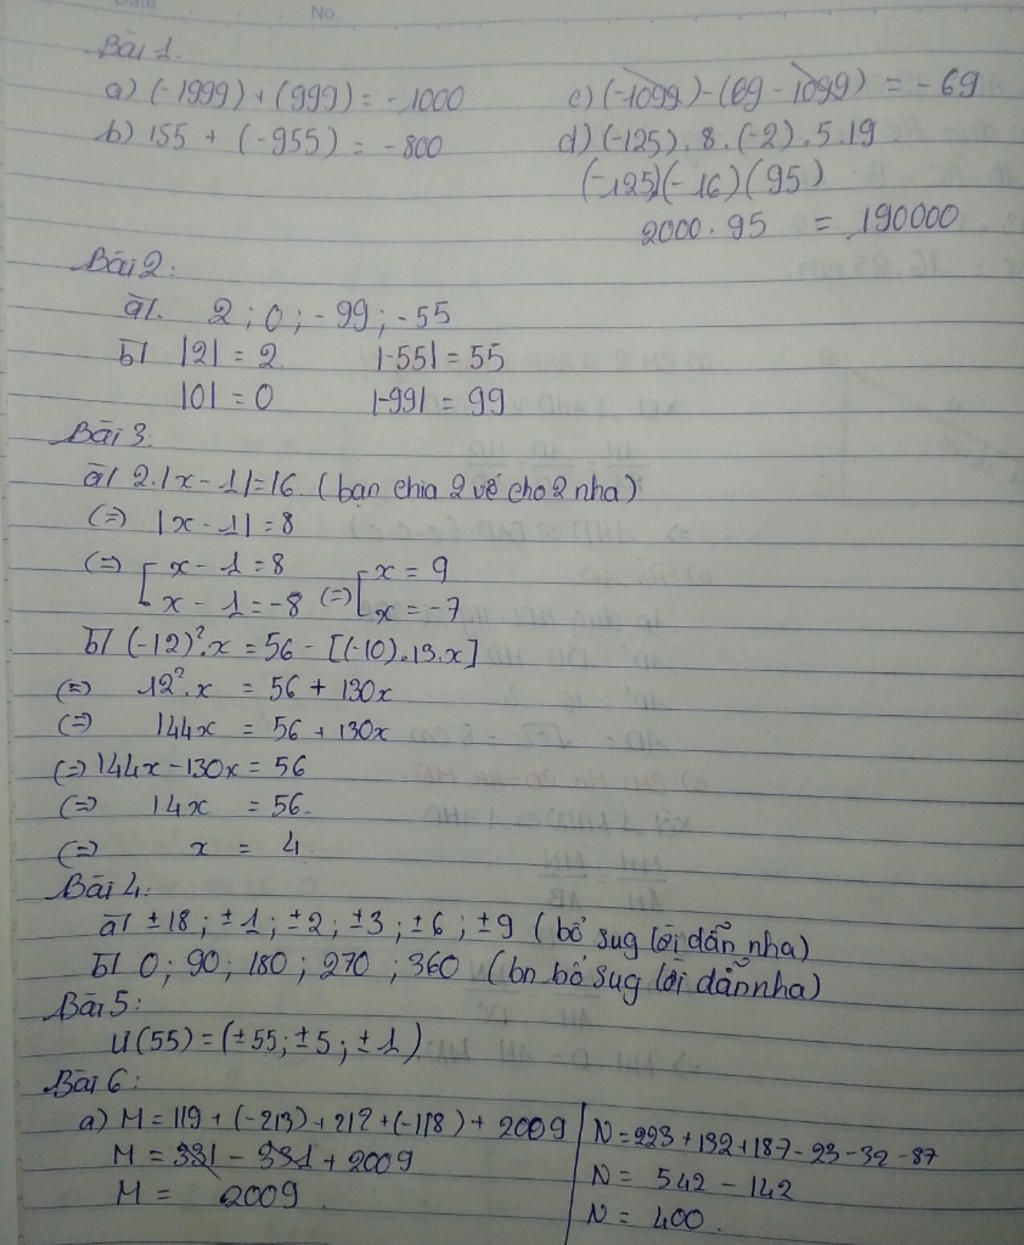 No.
Bài 1.
a) (-1999) + (999) = -1000
b) 155 + (-955) = -800
c) (-1099) - (69 - 1099) = -69
d) (-125) . 8 . (-2) . 5 . 19
(-125)(-16)(95)
2000 . 95 = 190000
Bài 2:
a/. 2 ; 0 ; -99 ; -55
b/ |2| = 2. |-55| = 55
|0| = 0 |-99| = 99
Bài 3:
a/ 2.|x - 1| = 16. (bạn chia 2 vế cho 2 nha)
(=) |x - 1| = 8
(=) [ x - 1 = 8 (=) [ x = 9
x - 1 = -8 x = -7
b/ (-12)².x = 56 - [(-10).13.x]
(=) 12².x = 56 + 130x
(=) 144x = 56 + 130x
(=) 144x - 130x = 56
(=) 14x = 56.
(=) x = 4.
Bài 4:
a/ ±18 ; ±1 ; ±2 ; ±3 ; ±6 ; ±9 (bổ sug lời dẫn nha)
b/ 0 ; 90 ; 180 ; 270 ; 360 (bn bổ sug lời dẫn nha)
Bài 5:
Ư(55) = (±55 ; ±5 ; ±1)
Bài 6:
a) M = 119 + (-213) + 212 + (-118) + 2009
M = 331 - 331 + 2009
M = 2009.
N = 223 + 132 + 187 - 23 - 32 - 87
N = 542 - 142
N = 400.